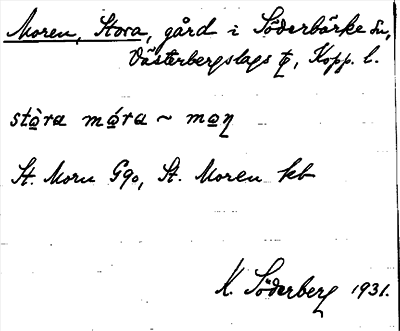 Moren, Stora, gård i Söderbärke sn,
Västerbergslags tg, Kopp. l.
stòra mǻra ~ moɳ
St. Morn G90, St. Moren kb
K. Söderberg 1931.